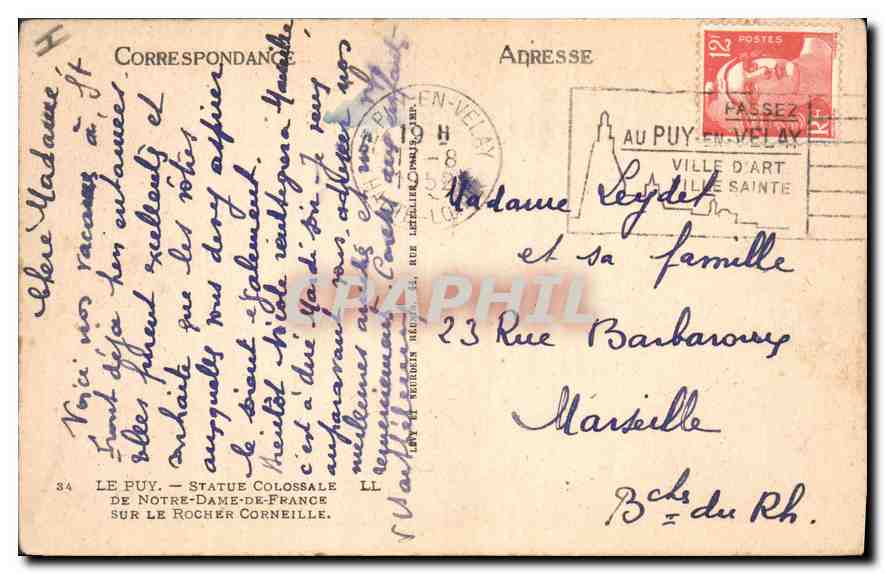 CORRESPONDANCE
ADRESSE
12F
POSTES
RF
LE PUY-EN-VELAY
19 H
-8
1952
HTE-LOIRE
PASSEZ
AU PUY-EN-VELAY
VILLE D'ART
VILLE SAINTE
Chère Madame
Voici nos vacances à St
Front déjà bien entamées.
Elles furent excellentes et
souhaite que les vôtres
auxquelles vous devez aspirer
le soient également.
Bientôt Nicole réintégrera Marseille
c'est à dire Mardi soir. Je veux
auparavant vous adresser nos
meilleures amitiés et nos
Madame Leydet
et sa famille
23 Rue Barbaroux
Marseille
Bchs du Rh.
LÉVY ET NEURDEIN RÉUNIS, 44, RUE LETELLIER, PARIS, IMP.
CPARPHIL
34 LE PUY. — STATUE COLOSSALE
DE NOTRE-DAME-DE-FRANCE
SUR LE ROCHER CORNEILLE.
LL